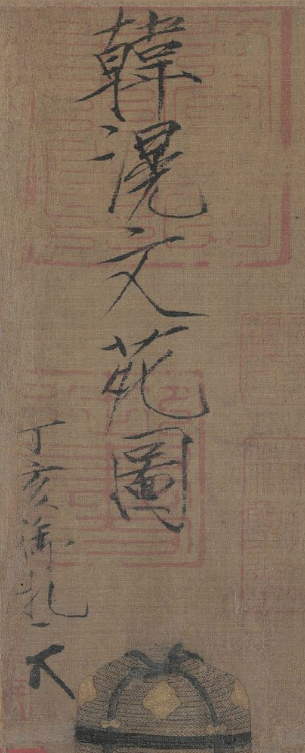 韓滉文苑圖
丁亥御札